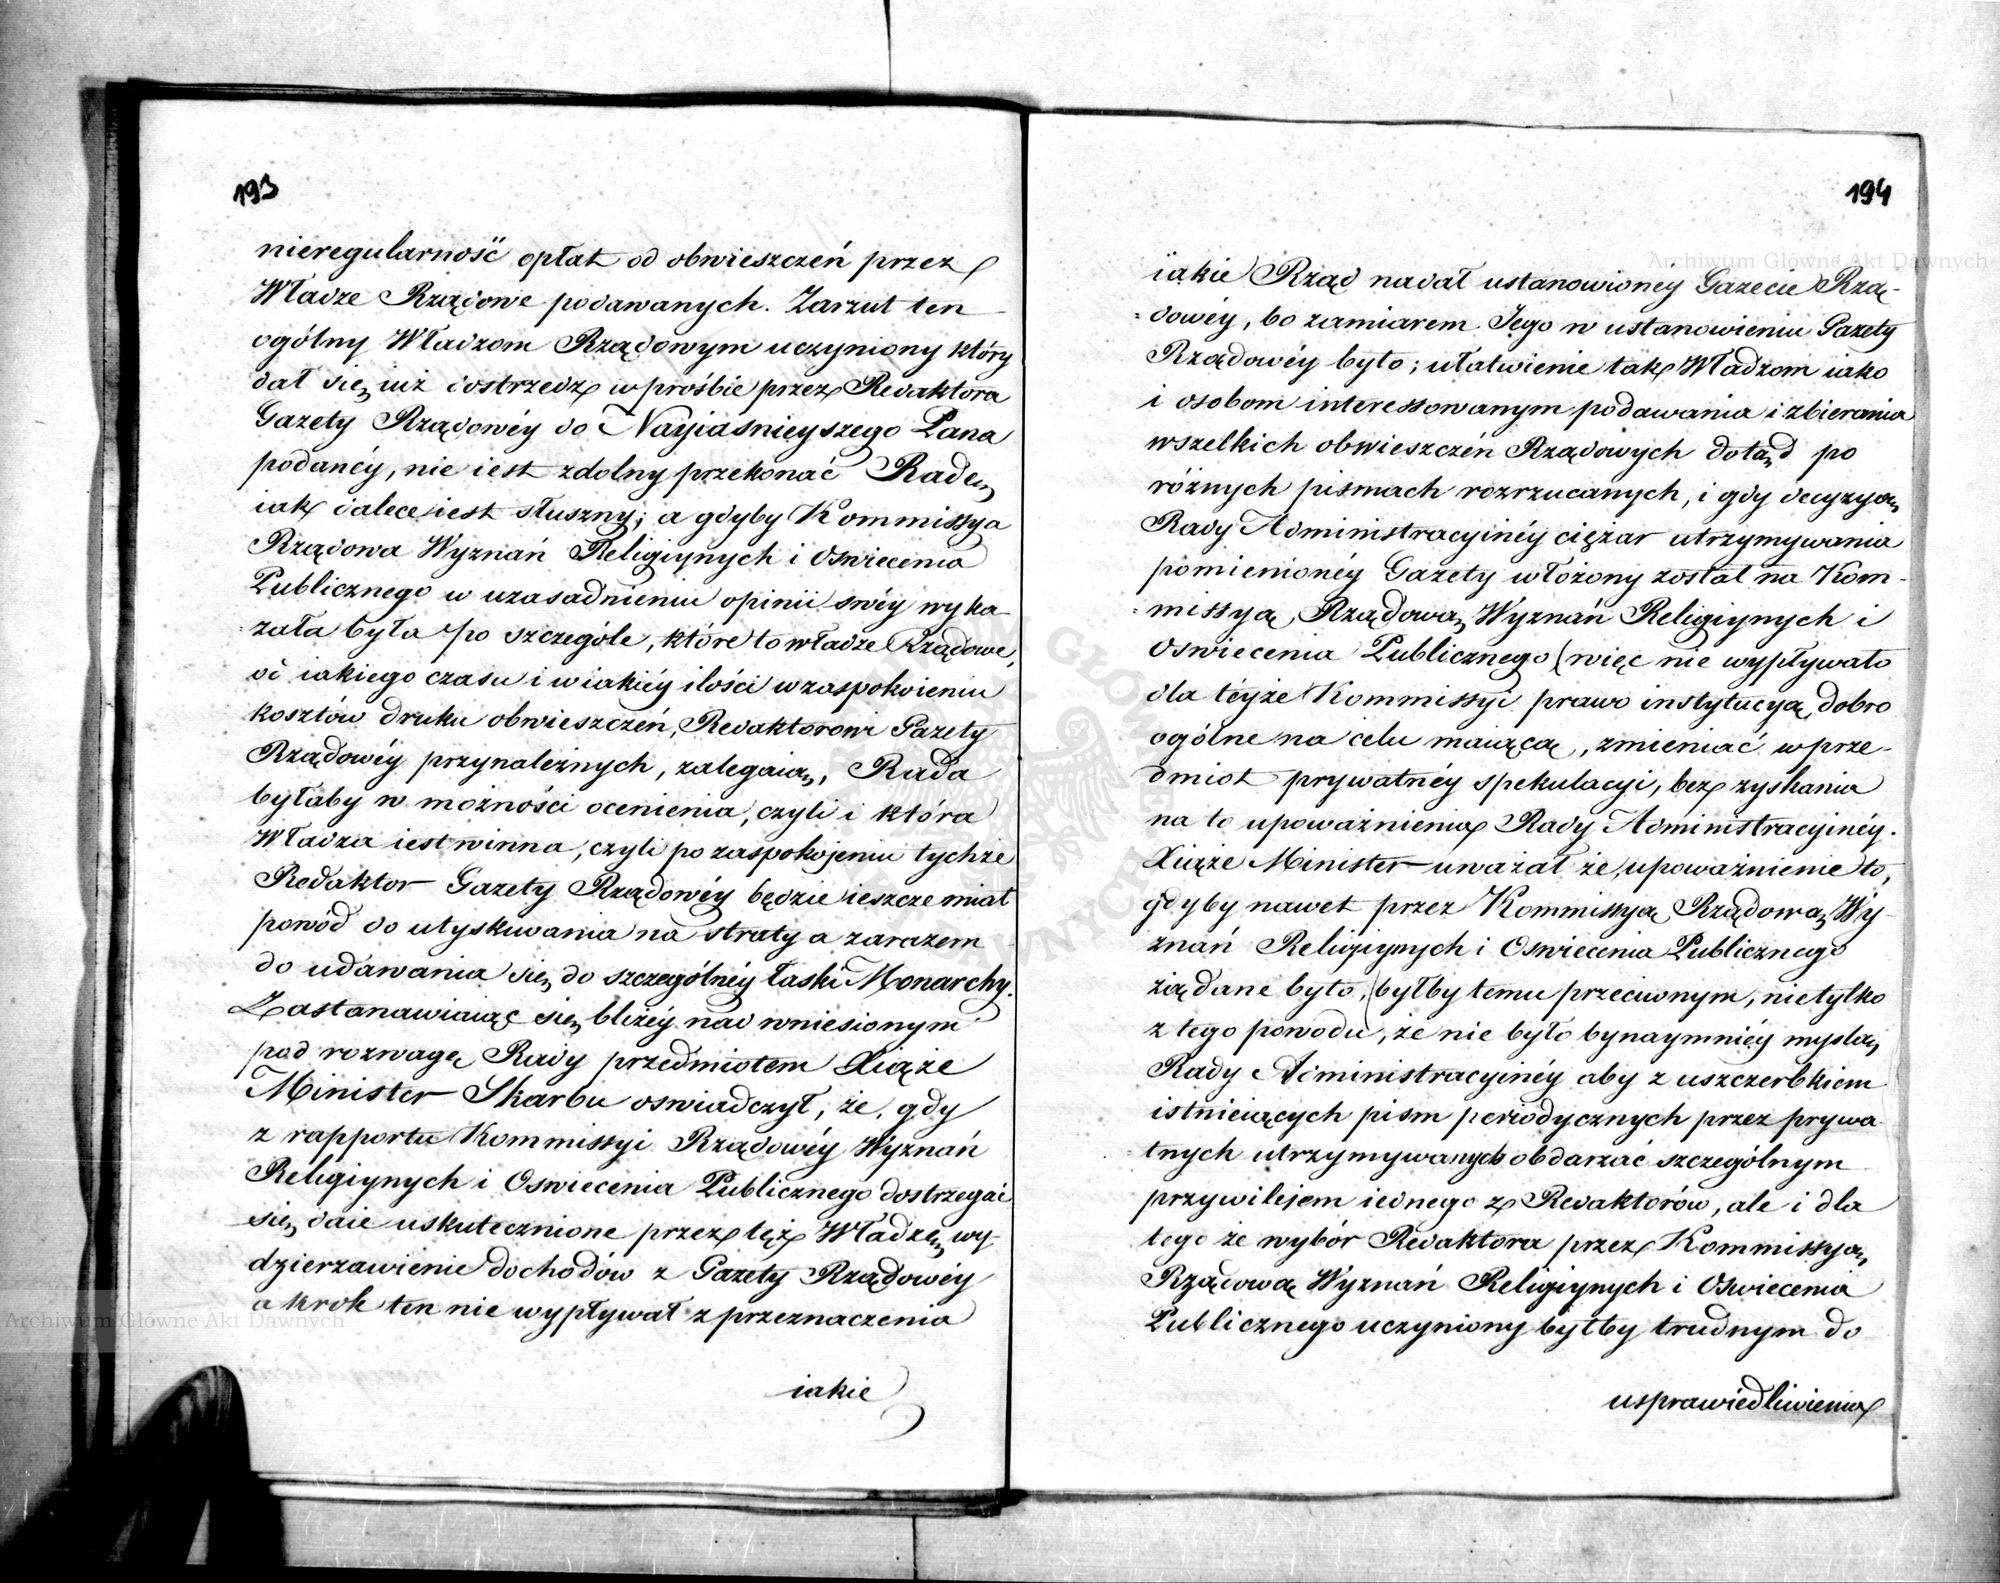 193
nieregularność opłat od obwieszczeń przez
Władze Rządowe podawanych. Zarzut ten
ogólny Władzom Rządowym uczyniony który
dał się iuż dostrzedz w prośbie przez Redaktora
Gazety Rządowéy do Nayiaśnieyszego Pana
podanéy, nie iest zdolny przekonać Radę
iak dalece iest słuszny; a gdyby Kommissya
Rządowa Wyznań Religiynych i Oswiecenia
Publicznego w uzasadnieniu opinii swéy wyka-
zała była po szczególe, które to władze Rządowe,
od iakiego czasu i w iakiéy ilości w zaspokoieniu
kosztów druku obwieszczeń, Redaktorowi Gazety
Rządowéy przynależnych, zalegaią, Rada
byłaby w możności ocenienia, czyli i która
Władza iest winna, czyli po zaspokojeniu tychże
Redaktor Gazety Rządowéy będzie ieszcze miał
powód do utyskiwania na straty a zarazem
do udawania się do szczególnéy łaski Monarchy.
Zastanawiaiąc się bliżéy nad wniesionym
pod rozwagę Rady przedmiotem Xiąże
Minister Skarbu oswiadczył, że, gdy
z rapportu Kommissyi Rządowéy Wyznań
Religiynych i Oswiecenia Publicznego dostrzegać
się daie uskutecznione przez też Władzę wy-
dzierzawienie dochodów z Gazety Rządowéy
a krok ten nie wypływał z przeznaczenia
iakie
194
iakie Rząd nadał ustanowioney Gazecie Rzą-
dowéy, bo zamiarem Jego w ustanowieniu Gazety
Rządowéy było; ułatwienie tak Władzom iako
i osobom interessowanym podawania i zbierania
wszelkich obwieszczeń Rządowych dotąd po
różnych pismach rozrzucanych, i gdy decyzyą
Rady Administracyinéy ciężar utrzymywania
pomienionéy Gazety włożony został na Kom-
missyą Rządową Wyznań Religiynych i
Oswiecenia Publicznego (więc nie wypływało
dla téyże Kommissyi prawo instytucyą, dobro
ogólne na celu maiącą, zmieniać w prze-
dmiot prywatnéy spekulacyi, bez zyskania
na to upoważnienia Rady Administracyinéy.
Xiąże Minister uważał że, upoważnienie to,
gdyby nawet przez Kommissyą Rządową Wy-
znań Religiynych i Oswiecenia Publicznego
żądane było, byłby temu przeciwnym, nietylko
z tego powodu, że nie było bynaymniéy myslą
Rady Administracyinéy aby z uszczerbkiem
istnieiących pism peryodycznych przez prywa-
tnych utrzymywanych obdarzać szczególnym
przywilejem iednego z Redaktorów, ale i dla
tego że wybór Redaktora przez Kommissyą
Rządową Wyznań Religiynych i Oswiecenia
Publicznego uczyniony byłby trudnym do
usprawiedliwienia
Archiwum Główne Akt Dawnych
Archiwum Główne Akt Dawnych